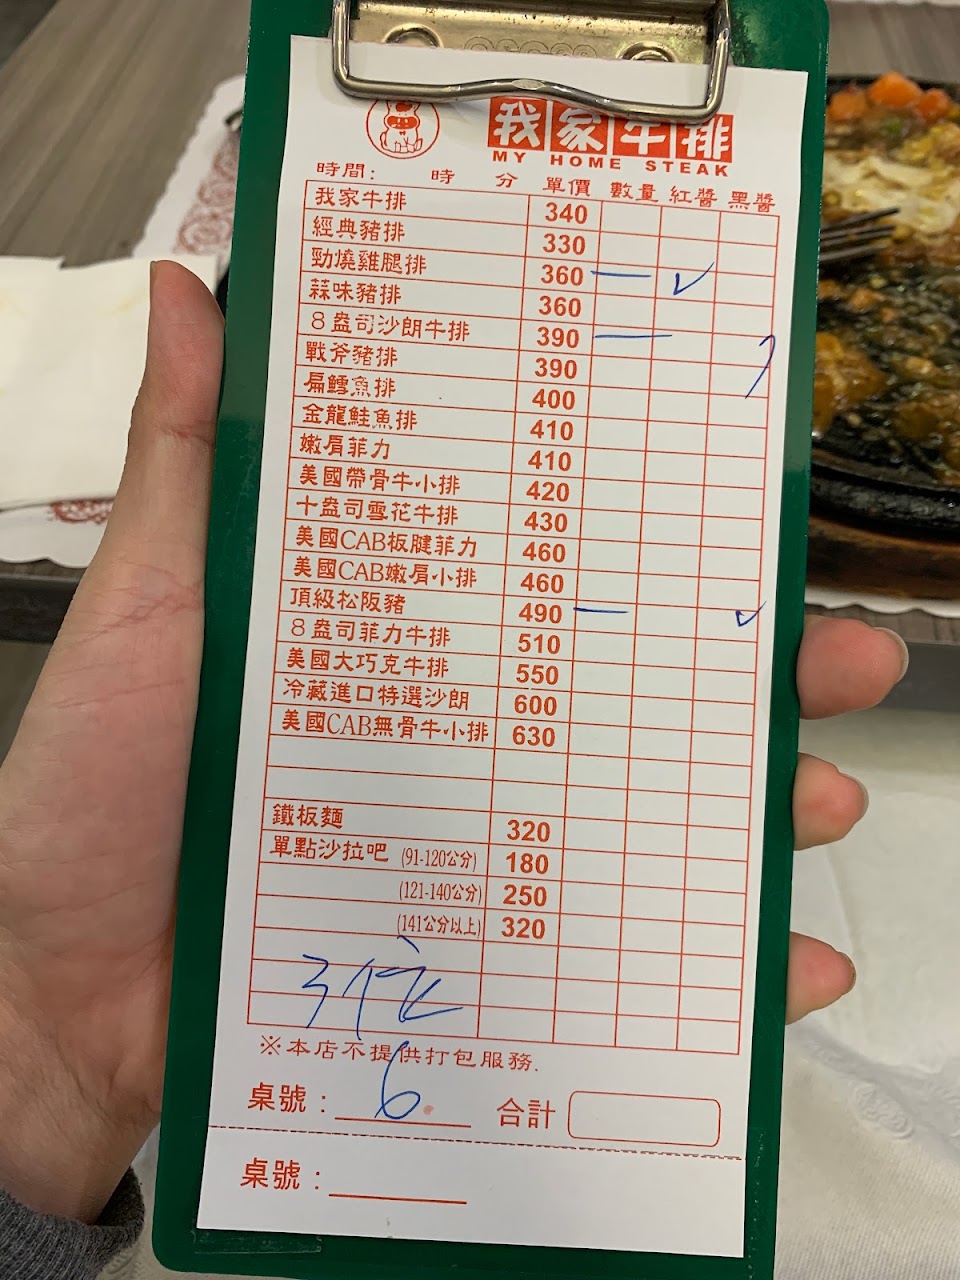 我家牛排
MY HOME STEAK
時間： 時 分 單價 數量 紅醬 黑醬
我家牛排 340
經典豬排 330
勁燒雞腿排 360 一 ✓
蒜味豬排 360
8盎司沙朗牛排 390 一 7
戰斧豬排 390
扁鱈魚排 400
金龍鮭魚排 410
嫩肩菲力 410
美國帶骨牛小排 420
十盎司雪花牛排 430
美國CAB板腱菲力 460
美國CAB嫩肩小排 460
頂級松阪豬 490 一 ✓
8盎司菲力牛排 510
美國大巧克牛排 550
冷藏進口特選沙朗 600
美國CAB無骨牛小排 630
鐵板麵 320
單點沙拉吧 (91-120公分) 180
(121-140公分) 250
(141公分以上) 320
3位
※本店不提供打包服務.
桌號：6 合計
桌號：